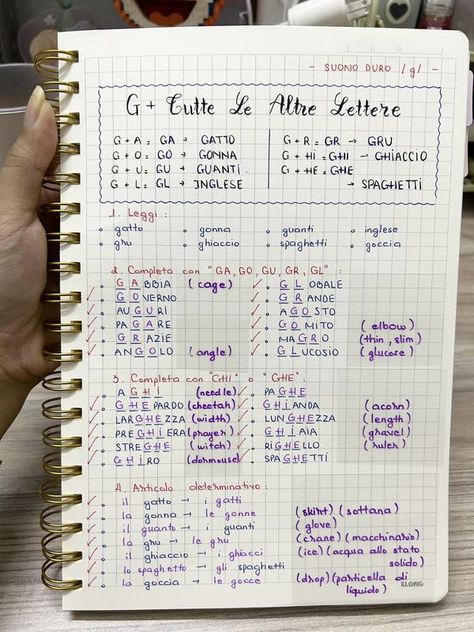 - SUONO DURO /g/ -
G + Tutte Le Altre Lettere
G + A = GA → GATTO
G + O = GO → GONNA
G + U = GU → GUANTI
G + L = GL → INGLESE
G + R = GR → GRU
G + HI = GHI → GHIACCIO
G + HE = GHE
→ SPAGHETTI
1. Leggi :
gatto gonna guanti inglese
gru ghiaccio spaghetti goccia
2. Completa con "GA, GO, GU, GR, GL" :
GABBIA (cage)
GOVERNO
AUGURI
PAGARE
GRAZIE
ANGOLO (angle)
GLOBALE
GRANDE
AGOSTO
GOMITO (elbow)
MAGRO (thin, slim)
GLUCOSIO (glucose)
3. Completa con "GHI" o "GHE"
AGHI (needle)
GHEPARDO (cheetah)
LARGHEZZA (width)
PREGHIERA (prayer)
STREGHE (witch)
GHIRO (dormouse)
PAGHE
GHIANDA (acorn)
LUNGHEZZA (length)
GHIAIA (gravel)
RIGHELLO (ruler)
SPAGHETTI
4. Articolo determinativo :
il gatto → i gatti
la gonna → le gonne (skirt) (sottana)
il guanto → i guanti (glove)
la gru → le gru (crane) (macchinario)
il ghiaccio → i ghiacci (ice) (acqua allo stato solido)
lo spaghetto → gli spaghetti
la goccia → le gocce (drop) (particella di liquido)
XLONG